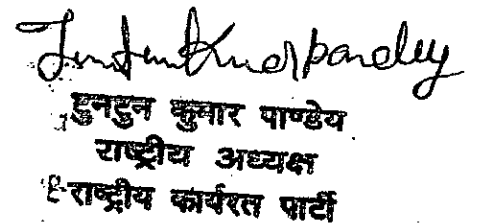 TunTunKumarpandey
टुनटुन कुमार पाण्डेय
राष्ट्रीय अध्यक्ष
राष्ट्रीय कार्यरत पार्टी